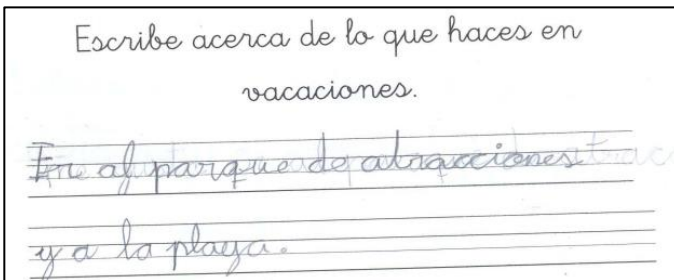 Escribe acerca de lo que haces en
vacaciones.
al parque de atracciones
y a la playa.